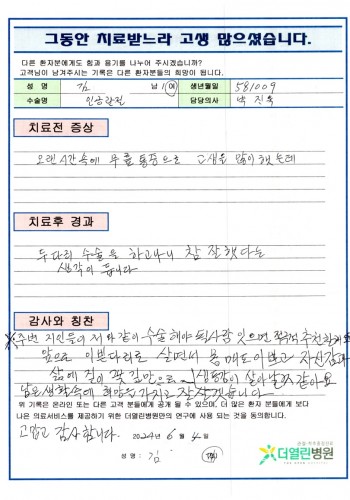 그동안 치료받느라 고생 많으셨습니다.
다른 환자분에게도 힘과 용기를 나누어 주시겠습니까?
고객님이 남겨주시는 기록은 다른 환자분들의 희망이 됩니다.
성 명 김 남 / 여 생년월일 581009
수술명 인공관절 담당의사 박진욱
치료전 증상
오랜시간속에 무릎통증으로 고생을 많이했는데
치료후 경과
두다리 수술을 하고나니 참 잘했다는
생각이 듭니다
감사와 칭찬
※주변 지인들이 저와 같이 수술해야 될사람 있으면 적극 추천하려
앞으로 이쁜다리로 살면서 몸매도 이쁘고 자신감과
삶에 길이 꽃길만으로 생동감이 살아날것 같아요
남은생활속에 희망을 가지고 잘살겠습니다
위 기록은 온라인 또는 다른 고객 분들에게 공개 될 수 있으며, 더 많은 환자 분들에게 보다
나은 의료서비스를 제공하기 위한 더열린병원만의 연구에 사용 되는 것을 동의합니다.
고맙고 감사합니다. 2024년 6월 4일
성 명 : 김
더열린병원